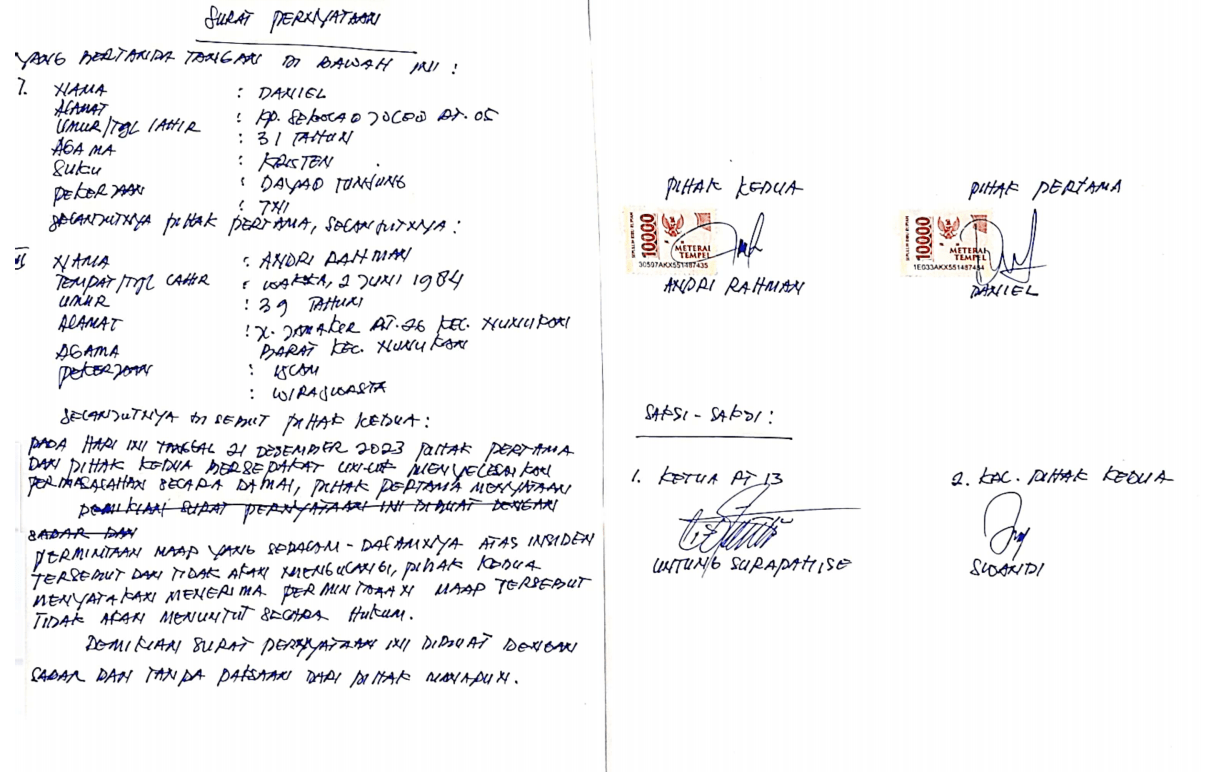 SURAT PERNYATAAN
YANG BERTANDA TANGAN DI BAWAH INI :
I. NAMA : DANIEL
ALAMAT : KP. SEKOLAQ JOLEQ RT. 05
UMUR/TGL LAHIR : 31 TAHUN
AGAMA : KRISTEN
SUKU : DAYAQ TUNJUNG
PEKERJAAN : TNI
SELANJUTNYA PIHAK PERTAMA, SELANJUTNYA :
II NAMA : ANDRI RAHMAN
TEMPAT/TGL LAHIR : 2 JUNI 1984
UMUR : 39 TAHUN
ALAMAT : RT. 26 KEC. NUNUKAN
BARAT KEC. NUNUKAN
AGAMA : ISLAM
PEKERJAAN : WIRASWASTA
SELANJUTNYA DI SEBUT PIHAK KEDUA :
PADA HARI INI TANGGAL 21 DESEMBER 2023 PIHAK PERTAMA
DAN PIHAK KEDUA BERSEPAKAT UNTUK MENYELESAIKAN
PERMASALAHAN SECARA DAMAI, PIHAK PERTAMA MENYATAAN
DEMIKIAN SURAT PERNYATAAN INI DIBUAT DENGAN
SADAR DAN
PERMINTAAN MAAP YANG SEDALAM-DALAMNYA ATAS INSIDEN
TERSEBUT DAN TIDAK AKAN MENGULANGI, PIHAK KEDUA
MENYATAKAN MENERIMA PERMINTAAN MAAP TERSEBUT
TIDAK AKAN MENUNTUT SECARA HUKUM.
DEMIKIAN SURAT PERNYATAAN INI DIBUAT DENGAN
SADAR DAN TANPA PAKSAAN DARI PIHAK MANAPUN.
PIHAK KEDUA PIHAK PERTAMA
10000 METERAI TEMPEL 10000 METERAI TEMPEL
30597AKX551487435 1E033AKX551487434
ANDRI RAHMAN DANIEL
SAKSI-SAKSI :
1. KETUA RT 13 2. KEL. PIHAK KEDUA
UNTUNG SURAPATI.SE SUDANDI